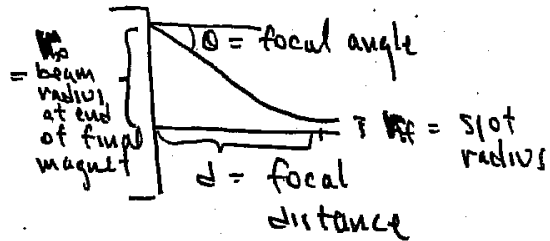 θ = focal angle
= beam
radius
at end
of final
magnet
= spot
radius
d = focal
distance